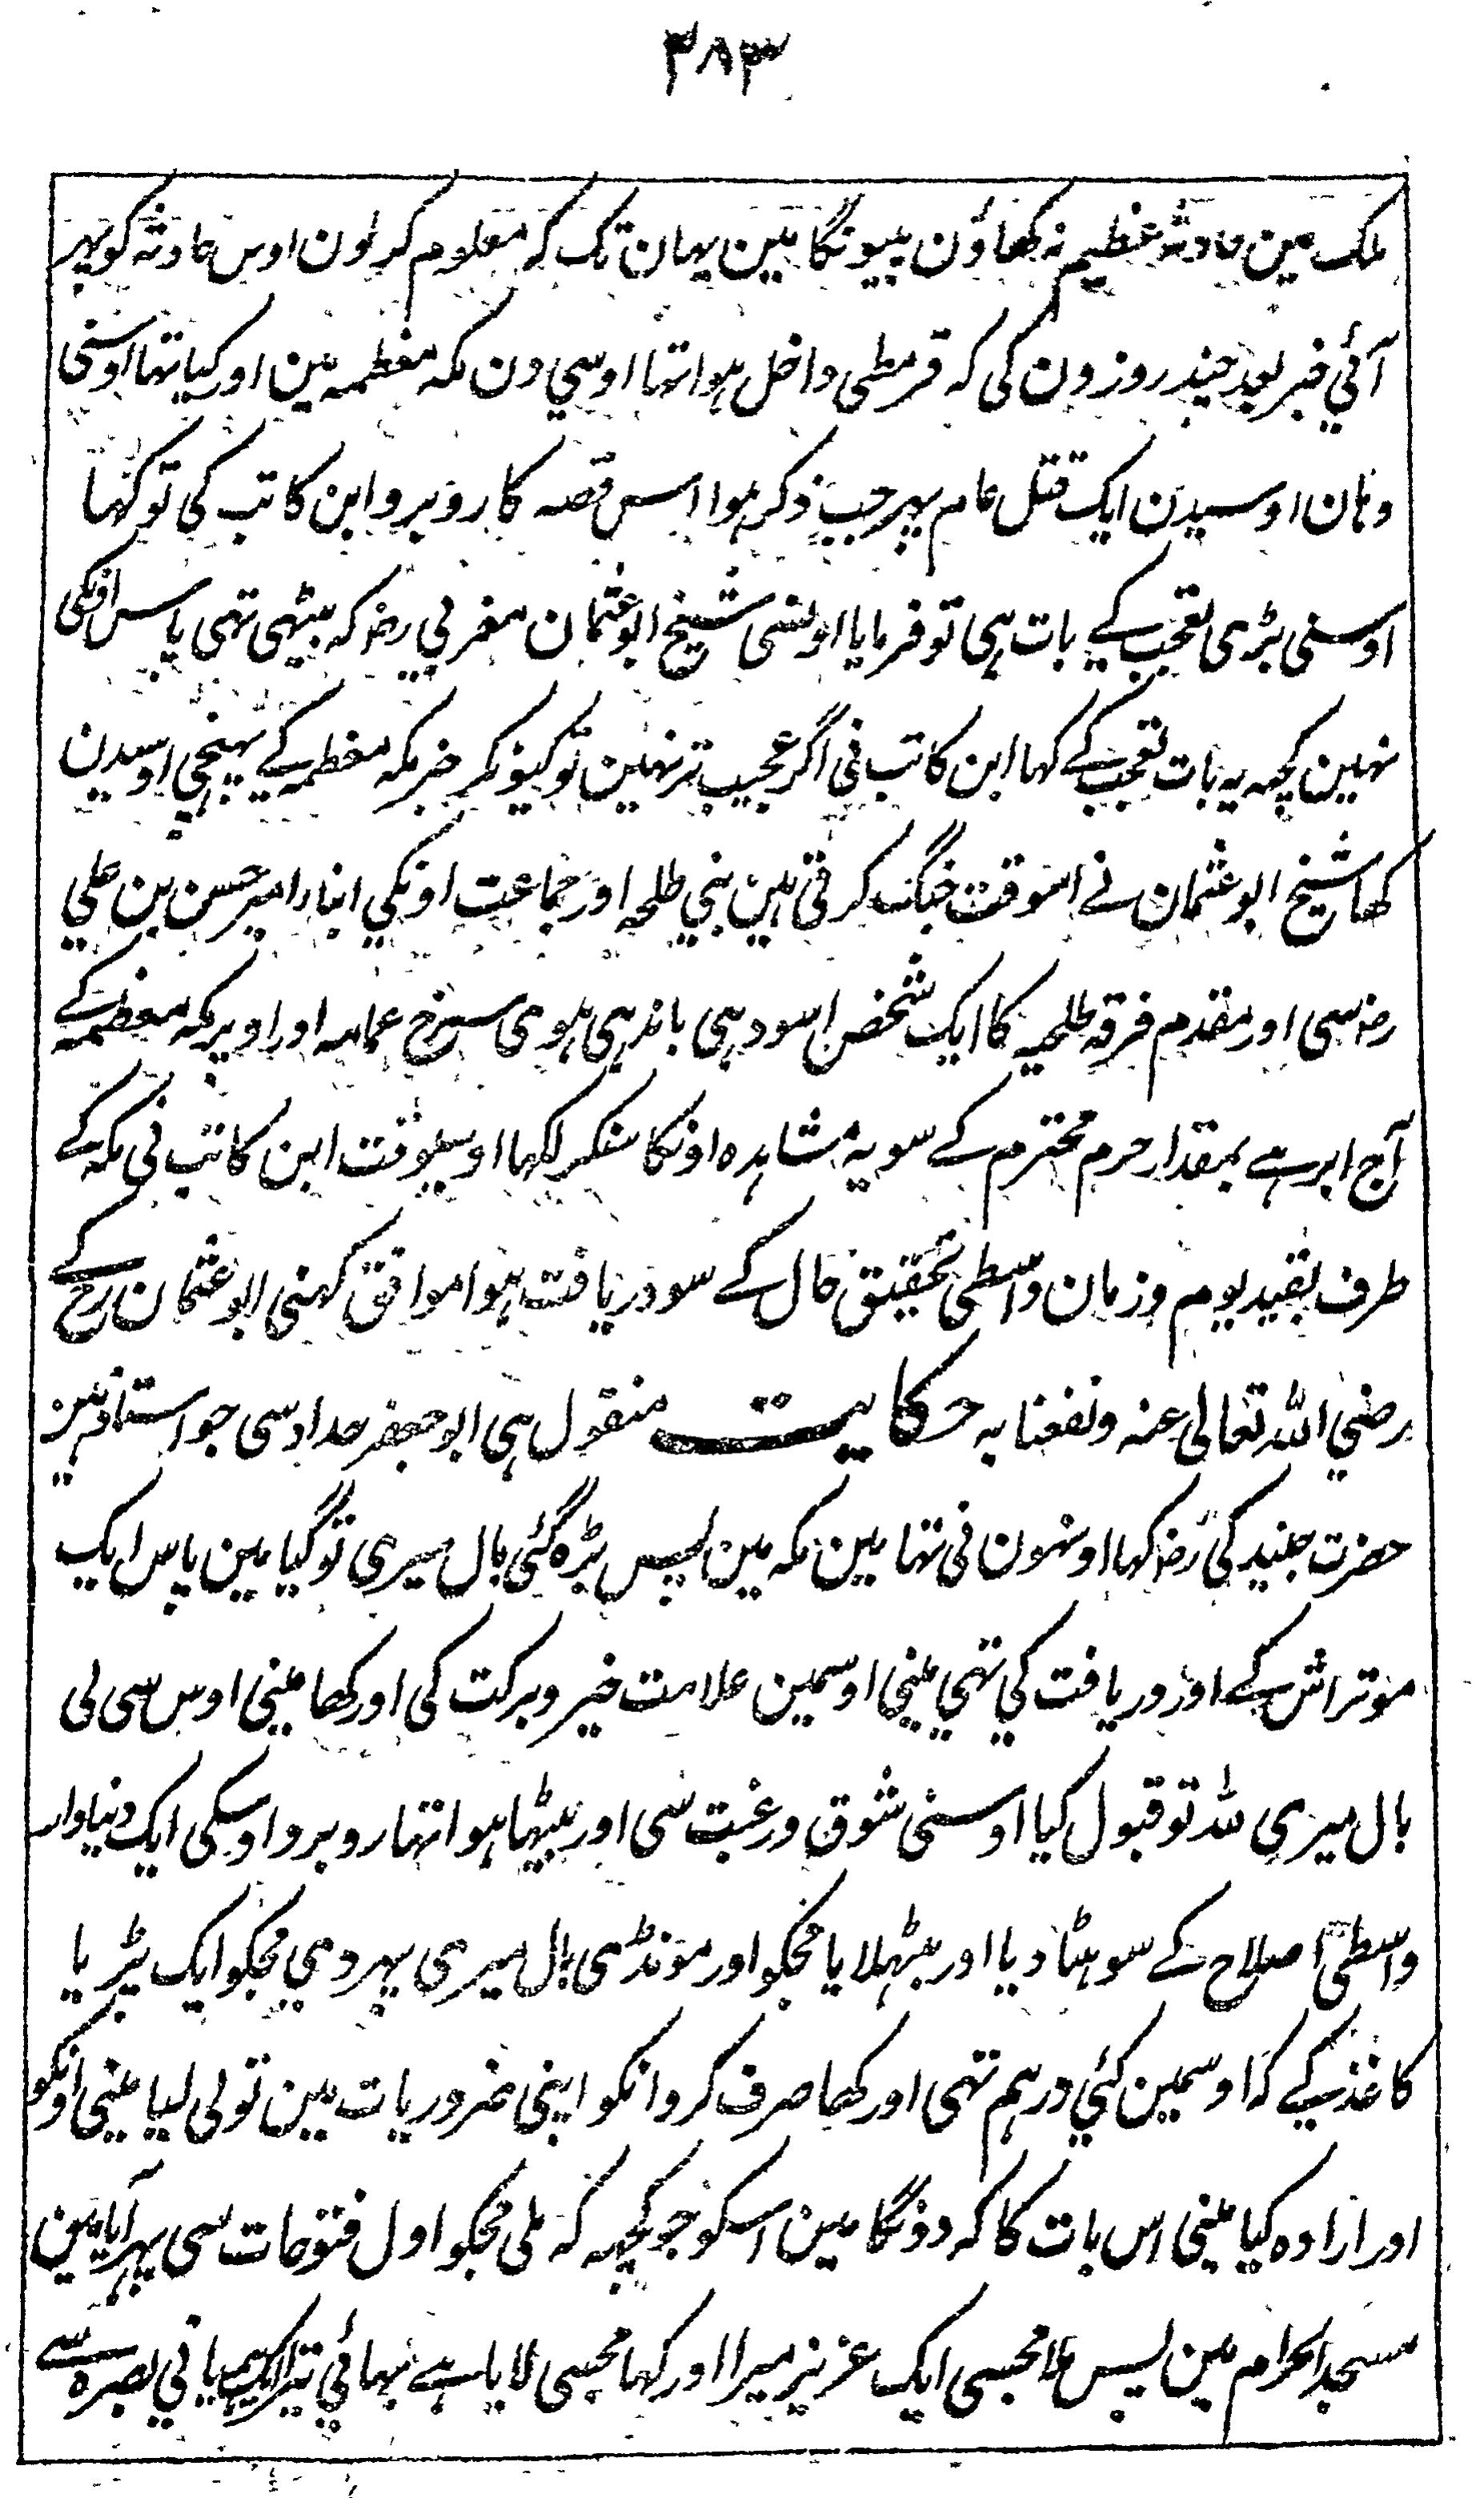 ۳۸۳
ملک مین حادثۂ عظیم نہ کھاؤن پیونگا مین یہان تک کہ معلوم کر لون اوس حادثہ کو پہر
آئي خبر بعد چند روزون کی کہ قرمطی داخل ہوا تہا اوسي دن مکہ معظمہ مین اور کیا تہا اوسنی
وہان اوسیدن ایک قتل عام پہر جب ذکر ہوا اس قصہ کا روبرو ابن کاتب کی تو کہا
اوسنی بڑی تعجب کے بات ہی تو فرمایا اونسی شیخ ابو عثمان مغربي رض کہ بیٹھی تھی پاس اونکی
نہین کچہ یہ بات تعجب کے کہا ابن کاتب نی اگر عجیب تر نہین تو کیونکر خبر مکہ معظمہ کے پہنچي اوسیدن
کھا شیخ ابو عثمان نے اسوقت جنگ کرتی ہین بني طلحہ اور جماعت اونکي ابناء امیر حسن بن علي
رض سی اور مقدم فرقہ طلحیہ کا ایک شخص اسود ہی باندہی ہوی سرخ عمامہ اور اوپر مکہ معظمہ کے
آج ابر ہے بمقدار حرم محترم کے سو یہ مشاہدہ اونکا سنکر لکہا اوسیوقت ابن کاتب نی مکہ کے
طرف بقید یوم وزمان واسطی تحقیق حال کے سو دریافت ہوا موافق کہنی ابو عثمان رح کے
رضي الله تعالى عنہ ونفعنا بہ حکایت منقول ہی ابو جعفر حداد سی جو استاد ہین
حضرت جنید کی رض کہا اونہون نی تہا مین مکہ مین پس بڑہ گئی بال میری تو گیا مین پاس ایک
موتراش کے اور دریافت کي تہي مینی اوسمین علامت خیر وبرکت کی اور کھا مینی اوس سی لی
بال میري للہ تو قبول کیا اوسنی شوق ورغبت سی اور بیٹہا ہوا تہا روبرو اوسکی ایک دنیادار
واسطی اصلاح کے سو ہٹا دیا اور بٹہلایا مجکو اور مونڈی بال میری پہر دي مجکو ایک پڑیا
کاغذ کے کہ اوسمین کئي درہم تہی اور کھا صرف کرو انکو اپنی ضروریات مین تو لی لیا مینی اونکو
اور ارادہ کیا مینی اس بات کا کہ دونگا مین اسکو جو کچہہ کہ ملی مجکو اول فتوحات سی پہر آیا مین
مسجد الحرام مین پس ملا مجسی ایک عزیز میرا اور کہا مجسی لایا ہے بہائي تیرا ایک ہمیاني بصرہ سے